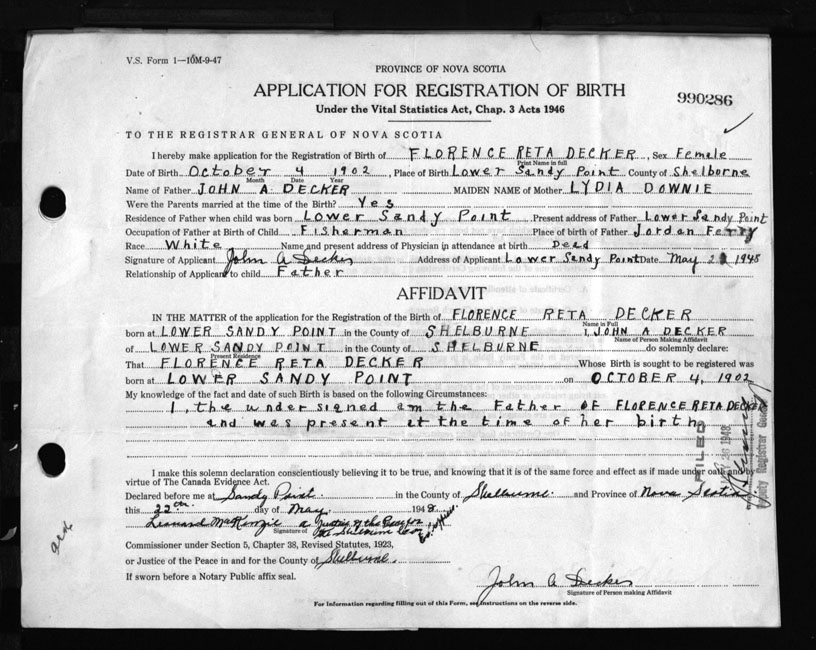 V.S. Form 1—10M-9-47
PROVINCE OF NOVA SCOTIA
APPLICATION FOR REGISTRATION OF BIRTH
990286
Under the Vital Statistics Act, Chap. 3 Acts 1946
TO THE REGISTRAR GENERAL OF NOVA SCOTIA
I hereby make application for the Registration of Birth of FLORENCE RETA DECKER, Sex Female
Print Name in full
Date of Birth October 4 1902, Place of Birth Lower Sandy Point County of Shelborne
Month Date Year
Name of Father JOHN A DECKER MAIDEN NAME of Mother LYDIA DOWNIE
Were the Parents married at the time of the Birth? Yes
Residence of Father when child was born Lower Sandy Point Present address of Father Lower Sandy Point
Occupation of Father at Birth of Child Fisherman Place of birth of Father Jordan Ferry
Race White Name and present address of Physician in attendance at birth Deed
Signature of Applicant John A Decker Address of Applicant Lower Sandy Point Date May 1948
Relationship of Applicant to child Father
AFFIDAVIT
IN THE MATTER of the application for Registration of the Birth of FLORENCE RETA DECKER
Name in Full
born at LOWER SANDY POINT in the County of SHELBURNE I, JOHN A DECKER
Name of Person Making Affidavit
of LOWER SANDY POINT in the County of SHELBURNE do solemnly declare:
Present Residence
That FLORENCE RETA DECKER Whose Birth is sought to be registered was
born at LOWER SANDY POINT on OCTOBER 4, 1902
My knowledge of the fact and date of such Birth is based on the following Circumstances:
I, the undersigned am the Father OF FLORENCE RETA DECKER
and was present at the time of her birth
FILED
1948
Deputy Registrar General
I make this solemn declaration conscientiously believing it to be true, and knowing that it is of the same force and effect as if made under oath and by
virtue of The Canada Evidence Act.
Declared before me at Sandy Point in the County of Shelburne and Province of Nova Scotia
this 22nd day of May 1948.
Leonard MacKenzie a Justice of the Peace for
Signature of
the Shelburne
Commissioner under Section 5, Chapter 38, Revised Statutes, 1923,
or Justice of the Peace in and for the County of Shelburne.
If sworn before a Notary Public affix seal.
John A Decker
Signature of Person making Affidavit
For Information regarding filling out of this Form, see instructions on the reverse side.